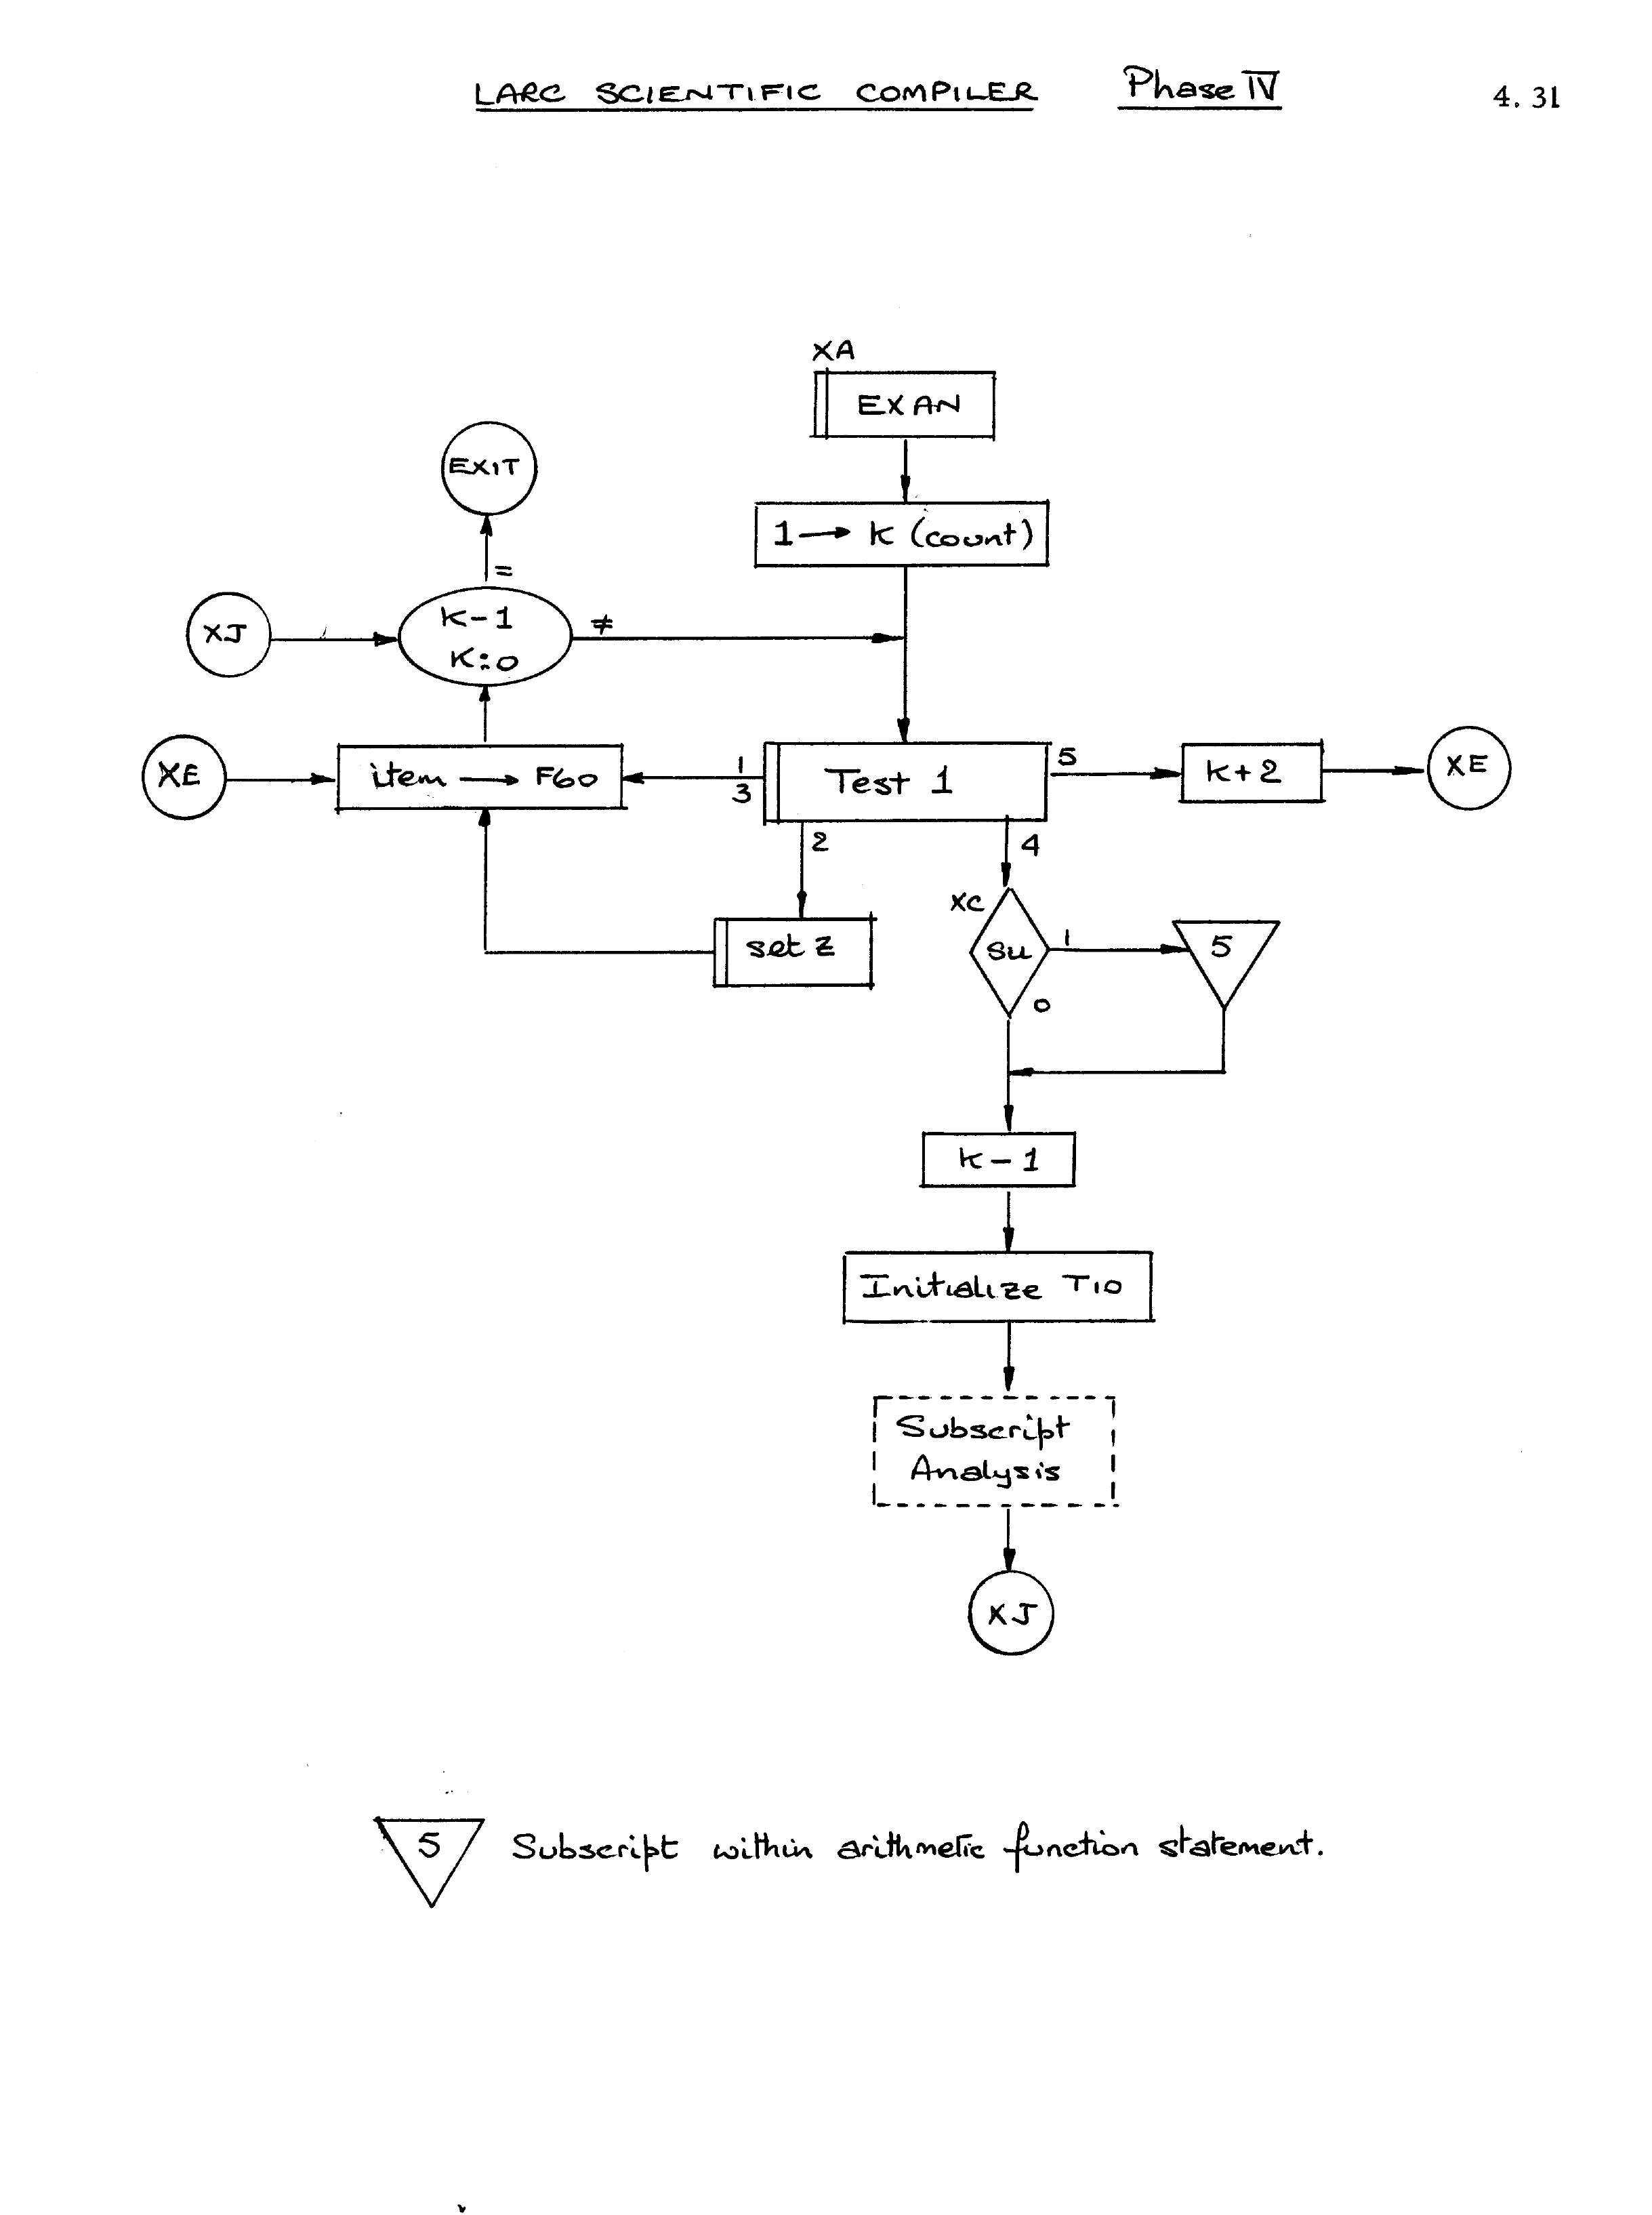 LARC SCIENTIFIC COMPILER Phase IV 4.31
XA
EXAN
EXIT
1 → K (count)
=
XJ
K-1
K:0
≠
XE
item → F60
1
3
Test 1
5
K+2
XE
2
4
set Z
XC
SU
1
5
0
K-1
Initialize T10
Subscript
Analysis
XJ
5 Subscript within arithmetic function statement.